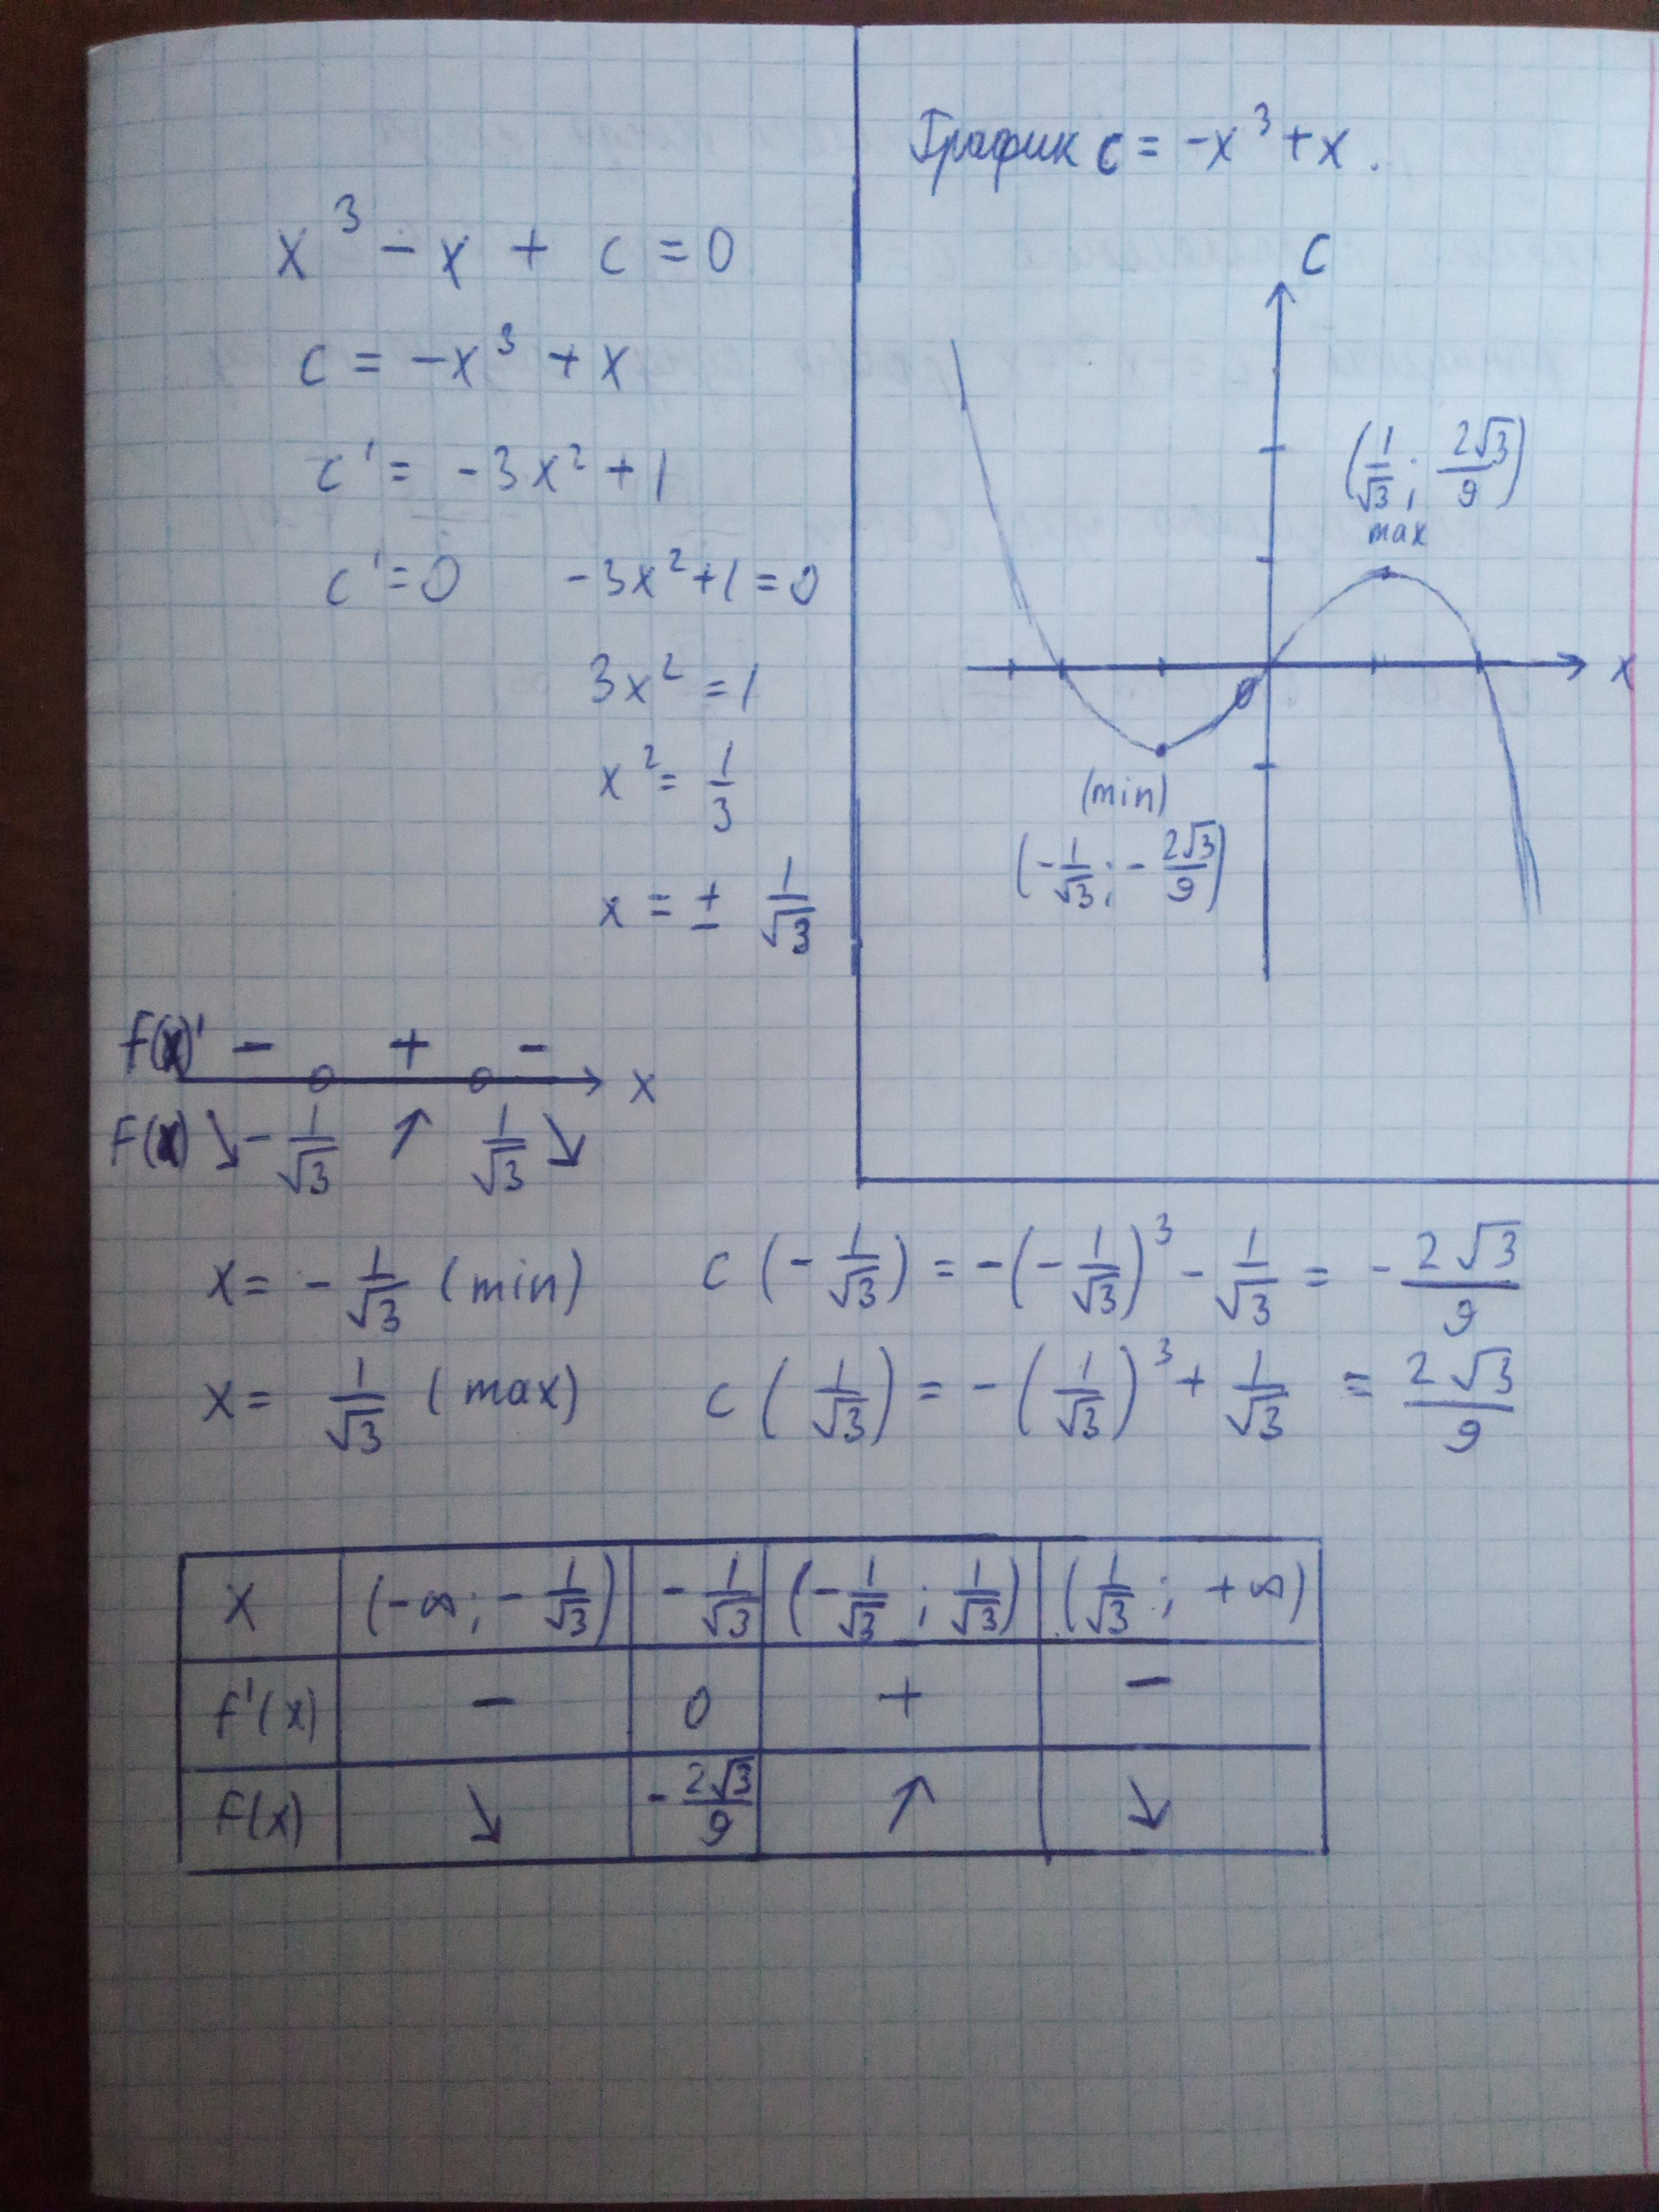 x³ − x + c = 0
c = −x³ + x
c' = −3x² + 1
c' = 0    −3x² + 1 = 0
3x² = 1
x² = 1/3
x = ± 1/√3
График c = −x³ + x.
c
(1/√3; 2√3/9)
max
x
0
(min)
(−1/√3; −2√3/9)
f(x)' − + − x
f(x) ↘ −1/√3 ↗ 1/√3 ↘
x = −1/√3 (min)    c(−1/√3) = −(−1/√3)³ − 1/√3 = −2√3/9
x = 1/√3 (max)    c(1/√3) = −(1/√3)³ + 1/√3 = 2√3/9
x (−∞; −1/√3) −1/√3 (−1/√3; 1/√3) (1/√3; +∞)
f'(x) − 0 + −
f(x) ↘ −2√3/9 ↗ ↘